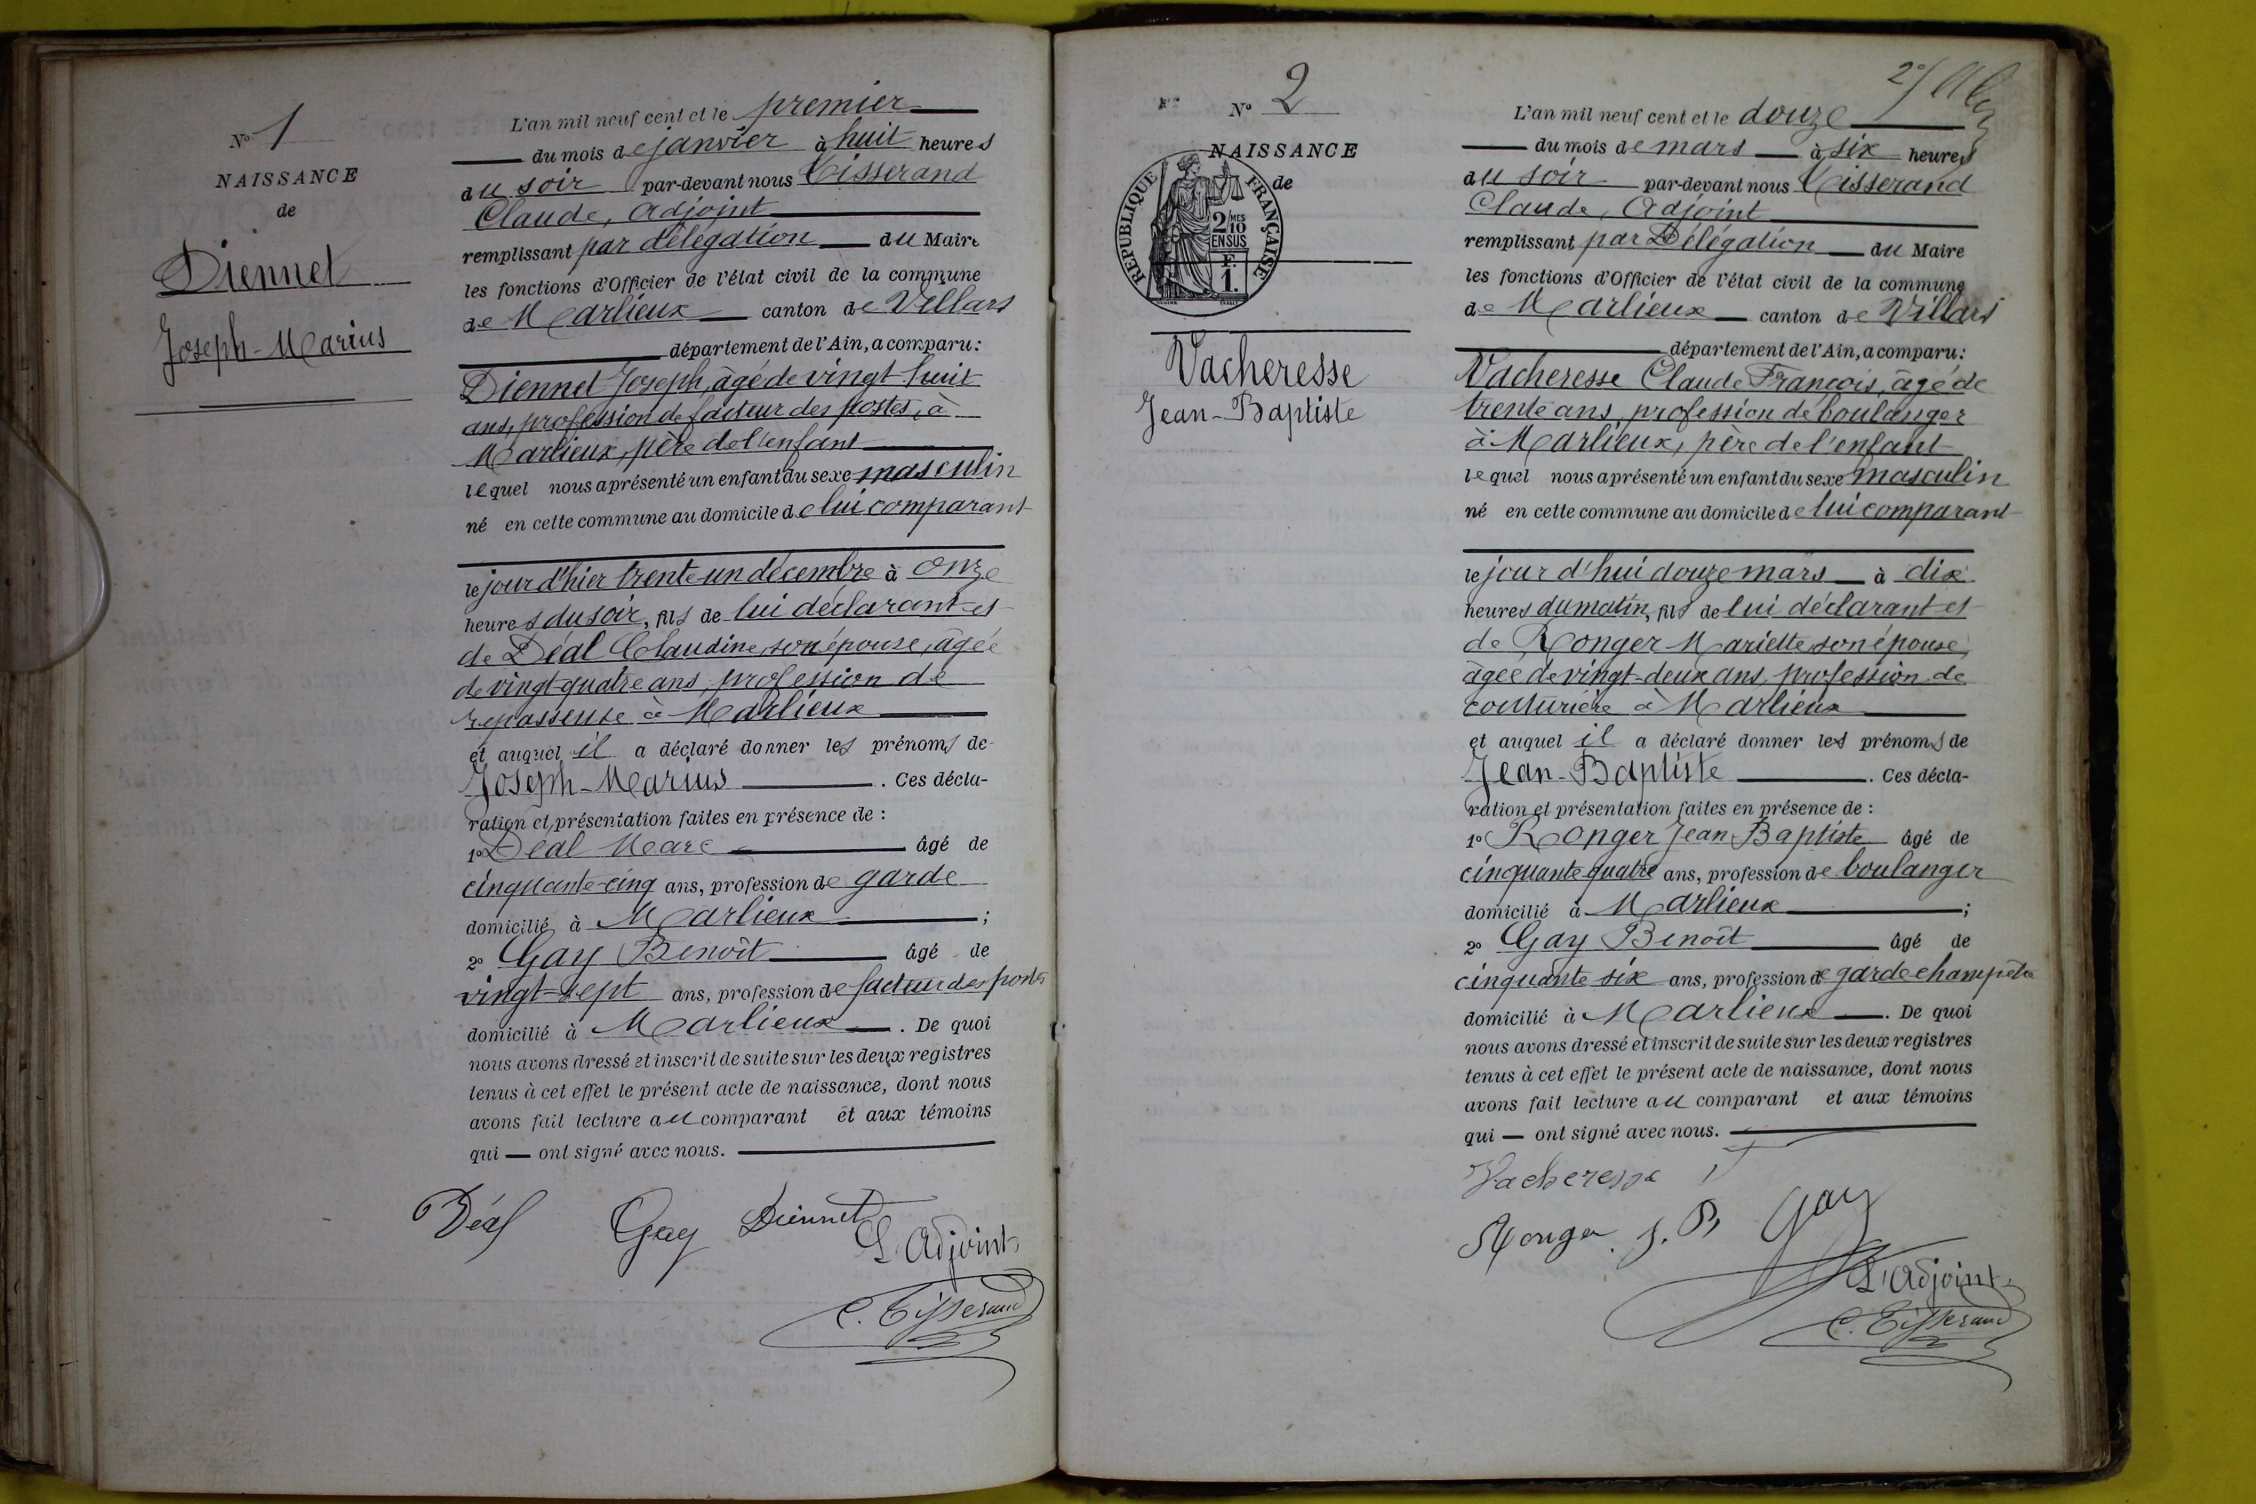 N° 1
NAISSANCE
de
Diennet
Joseph-Marius
L'an mil neuf cent et le premier
du mois de janvier à huit heures
du soir par-devant nous Tisserand
Claude, Adjoint
remplissant par délégation du Maire
les fonctions d'Officier de l'état civil de la commune
de Marlieux canton de Villars
département de l'Ain, a comparu:
Diennet Joseph, âgé de vingt huit
ans, profession de facteur des postes, à
Marlieux, père de l'enfant
lequel nous a présenté un enfant du sexe masculin
né en cette commune au domicile de lui comparant
le jour d'hier trente-un décembre à onze
heures du soir, fils de lui déclarant et
de Déal Claudine, son épouse, âgée
de vingt-quatre ans, profession de
repasseuse à Marlieux
et auquel il a déclaré donner les prénoms de
Joseph-Marius. Ces décla-
ration et présentation faites en présence de :
1° Déal Marc âgé de
cinquante-cinq ans, profession de garde
domicilié à Marlieux ;
2° Gay Benoît âgé de
vingt-sept ans, profession de facteur des postes
domicilié à Marlieux. De quoi
nous avons dressé et inscrit de suite sur les deux registres
tenus à cet effet le présent acte de naissance, dont nous
avons fait lecture au comparant et aux témoins
qui — ont signé avec nous.
Déal Gay Diennet
L'Adjoint,
C. Tisserand
N° 2
NAISSANCE
de
RÉPUBLIQUE FRANÇAISE
2/10 MES
EN SUS
F.
1.
Vacheresse
Jean-Baptiste
2°/
L'an mil neuf cent et le douze
du mois de mars à six heures
du soir par-devant nous Tisserand
Claude, Adjoint
remplissant par Délégation du Maire
les fonctions d'Officier de l'état civil de la commune
de Marlieux canton de Villars
département de l'Ain, a comparu:
Vacheresse Claude François, âgé de
trente ans, profession de boulanger
à Marlieux, père de l'enfant
lequel nous a présenté un enfant du sexe masculin
né en cette commune au domicile de lui comparant
le jour d'hui douze mars à dix
heures du matin, fils de lui déclarant et
de Ronger Mariette, son épouse,
âgée de vingt-deux ans, profession de
couturière à Marlieux
et auquel il a déclaré donner les prénoms de
Jean-Baptiste. Ces décla-
ration et présentation faites en présence de :
1° Ronger Jean Baptiste âgé de
cinquante-quatre ans, profession de boulanger
domicilié à Marlieux ;
2° Gay Benoît âgé de
cinquante six ans, profession de garde champêtre
domicilié à Marlieux. De quoi
nous avons dressé et inscrit de suite sur les deux registres
tenus à cet effet le présent acte de naissance, dont nous
avons fait lecture au comparant et aux témoins
qui — ont signé avec nous.
Vacheresse
Ronger J. B Gay
L'Adjoint,
C. Tisserand